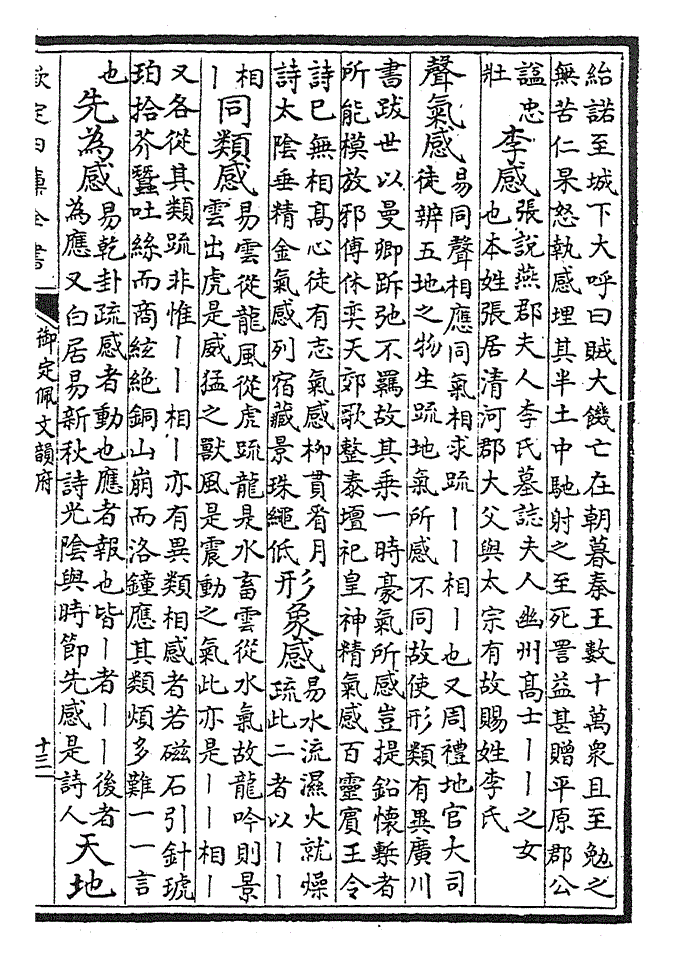 紿諾至城下大呼曰賊大饑亡在朝暮秦王數十萬衆且至勉之
無苦仁杲怒執感埋其半土中馳射之至死詈益甚贈平原郡公
謚忠
壯
李感
張說燕郡夫人李氏墓誌夫人幽州髙士丨丨之女
也本姓張居清河郡大父與太宗有故賜姓李氏
聲氣感
易同聲相應同氣相求疏丨丨相丨也又周禮地官大司
徒辨五地之物生疏地氣所感不同故使形類有異廣川
書跋世以曼卿跅弛不羈故其乗一時豪氣所感豈提鉛懐槧者
所能模放邪傅休奕天郊歌整泰壇祀皇神精氣感百靈賓王令
詩已無相髙心徒有志氣感栁貫看月
詩太陰垂精金氣感列宿藏景珠繩低
形象感
易水流濕火就燥
疏此二者以丨丨
相
丨
同類感
易雲從龍風從虎疏龍是水畜雲從水氣故龍吟則景
雲出虎是威猛之獸風是震動之氣此亦是丨丨相丨
又各從其類疏非惟丨丨相丨亦有異類相感者若磁石引針琥
珀拾芥蠶吐絲而商絃絶銅山崩而洛鐘應其類煩多難一一言
也
先為感
易乾卦疏感者動也應者報也皆丨者丨丨後者
為應又白居易新秋詩光陰與時節先感是詩人
天地
欽定四庫全書
御定佩文韻府
十三